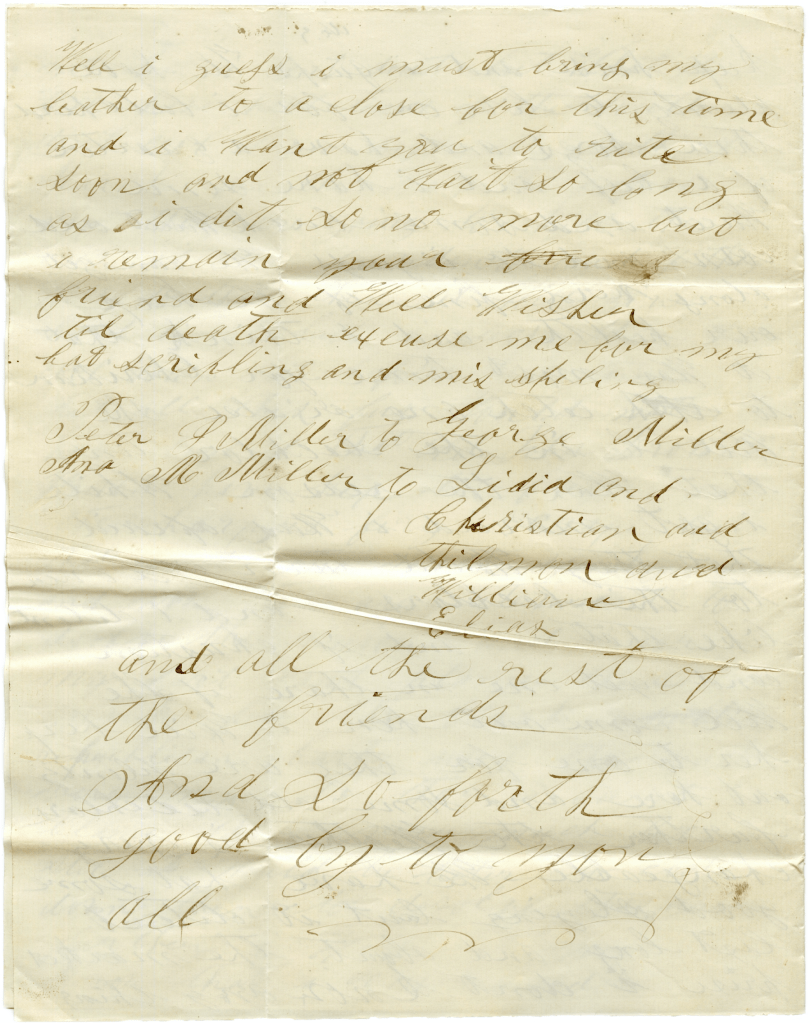 Well i guess i must bring my
leather to a close for this time
and i Want you to rite
soon and not Wait so long
as i dit so no more but
i remain your
friend and Well Wisher
til death excuse me for my
bat scripling and mis speling
Peter P Miller to George Miller
Ana M Miller to Lidid and
( Christian and
Tilmon and
William
Elias
and all the rest of
the friends
And so forth
good by to you
all